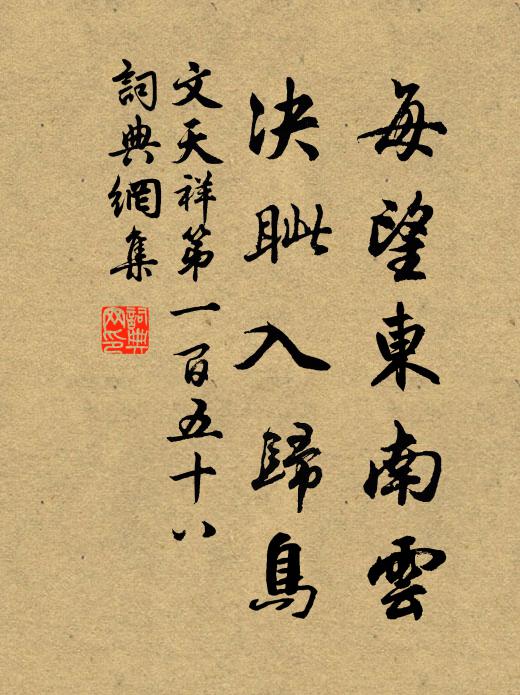 每望東南雲
決眦入歸鳥
文天祥第一百五十八
詞典網集
詞典网印